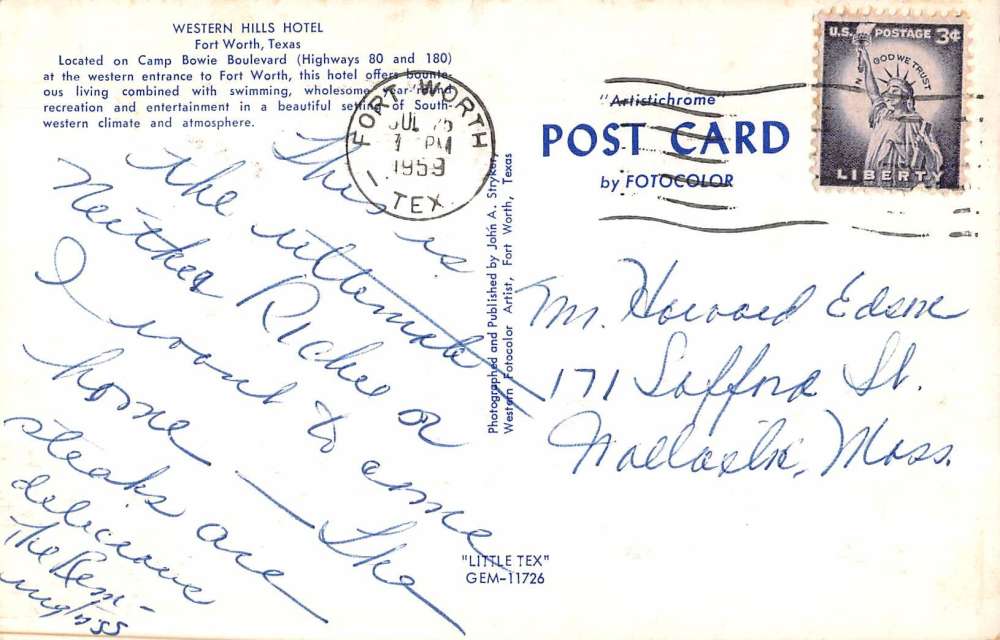 WESTERN HILLS HOTEL
Fort Worth, Texas
Located on Camp Bowie Boulevard (Highways 80 and 180)
at the western entrance to Fort Worth, this hotel offers bounte-
ous living combined with swimming, wholesome year 'round
recreation and entertainment in a beautiful setting of South-
western climate and atmosphere.
FORT WORTH
JUL
PM
1959
TEX.
U.S. POSTAGE 3¢
IN GOD WE TRUST
LIBERTY
"Artistichrome"
POST CARD
by FOTOCOLOR
This is
the ultimate
Neither Richee or
I want to come
home — The
steaks are
delicious
The Rem-
Photographed and Published by John A. Stryker,
Western Fotocolor Artist, Fort Worth, Texas
Mr. Howard
171 Safford St.
Mass.
"LITTLE TEX"
GEM-11726